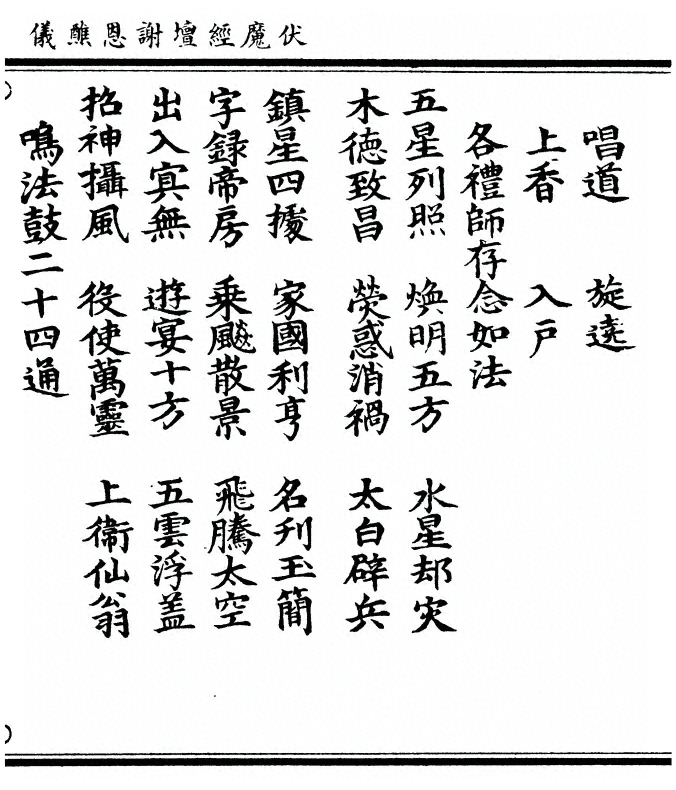 伏魔經壇謝恩醮儀
唱道　旋遶
上香　入戶
各禮師存念如法
五星列照　煥明五方　水星却灾
木德致昌　熒惑消禍　太白辟兵
鎮星四據　家國利亨　名刊玉簡
字録帝房　乗飈散景　飛騰太空
出入㝠無　遊宴十方　五雲浮盖
招神攝風　役使萬靈　上衛仙翁
鳴法鼓二十四通